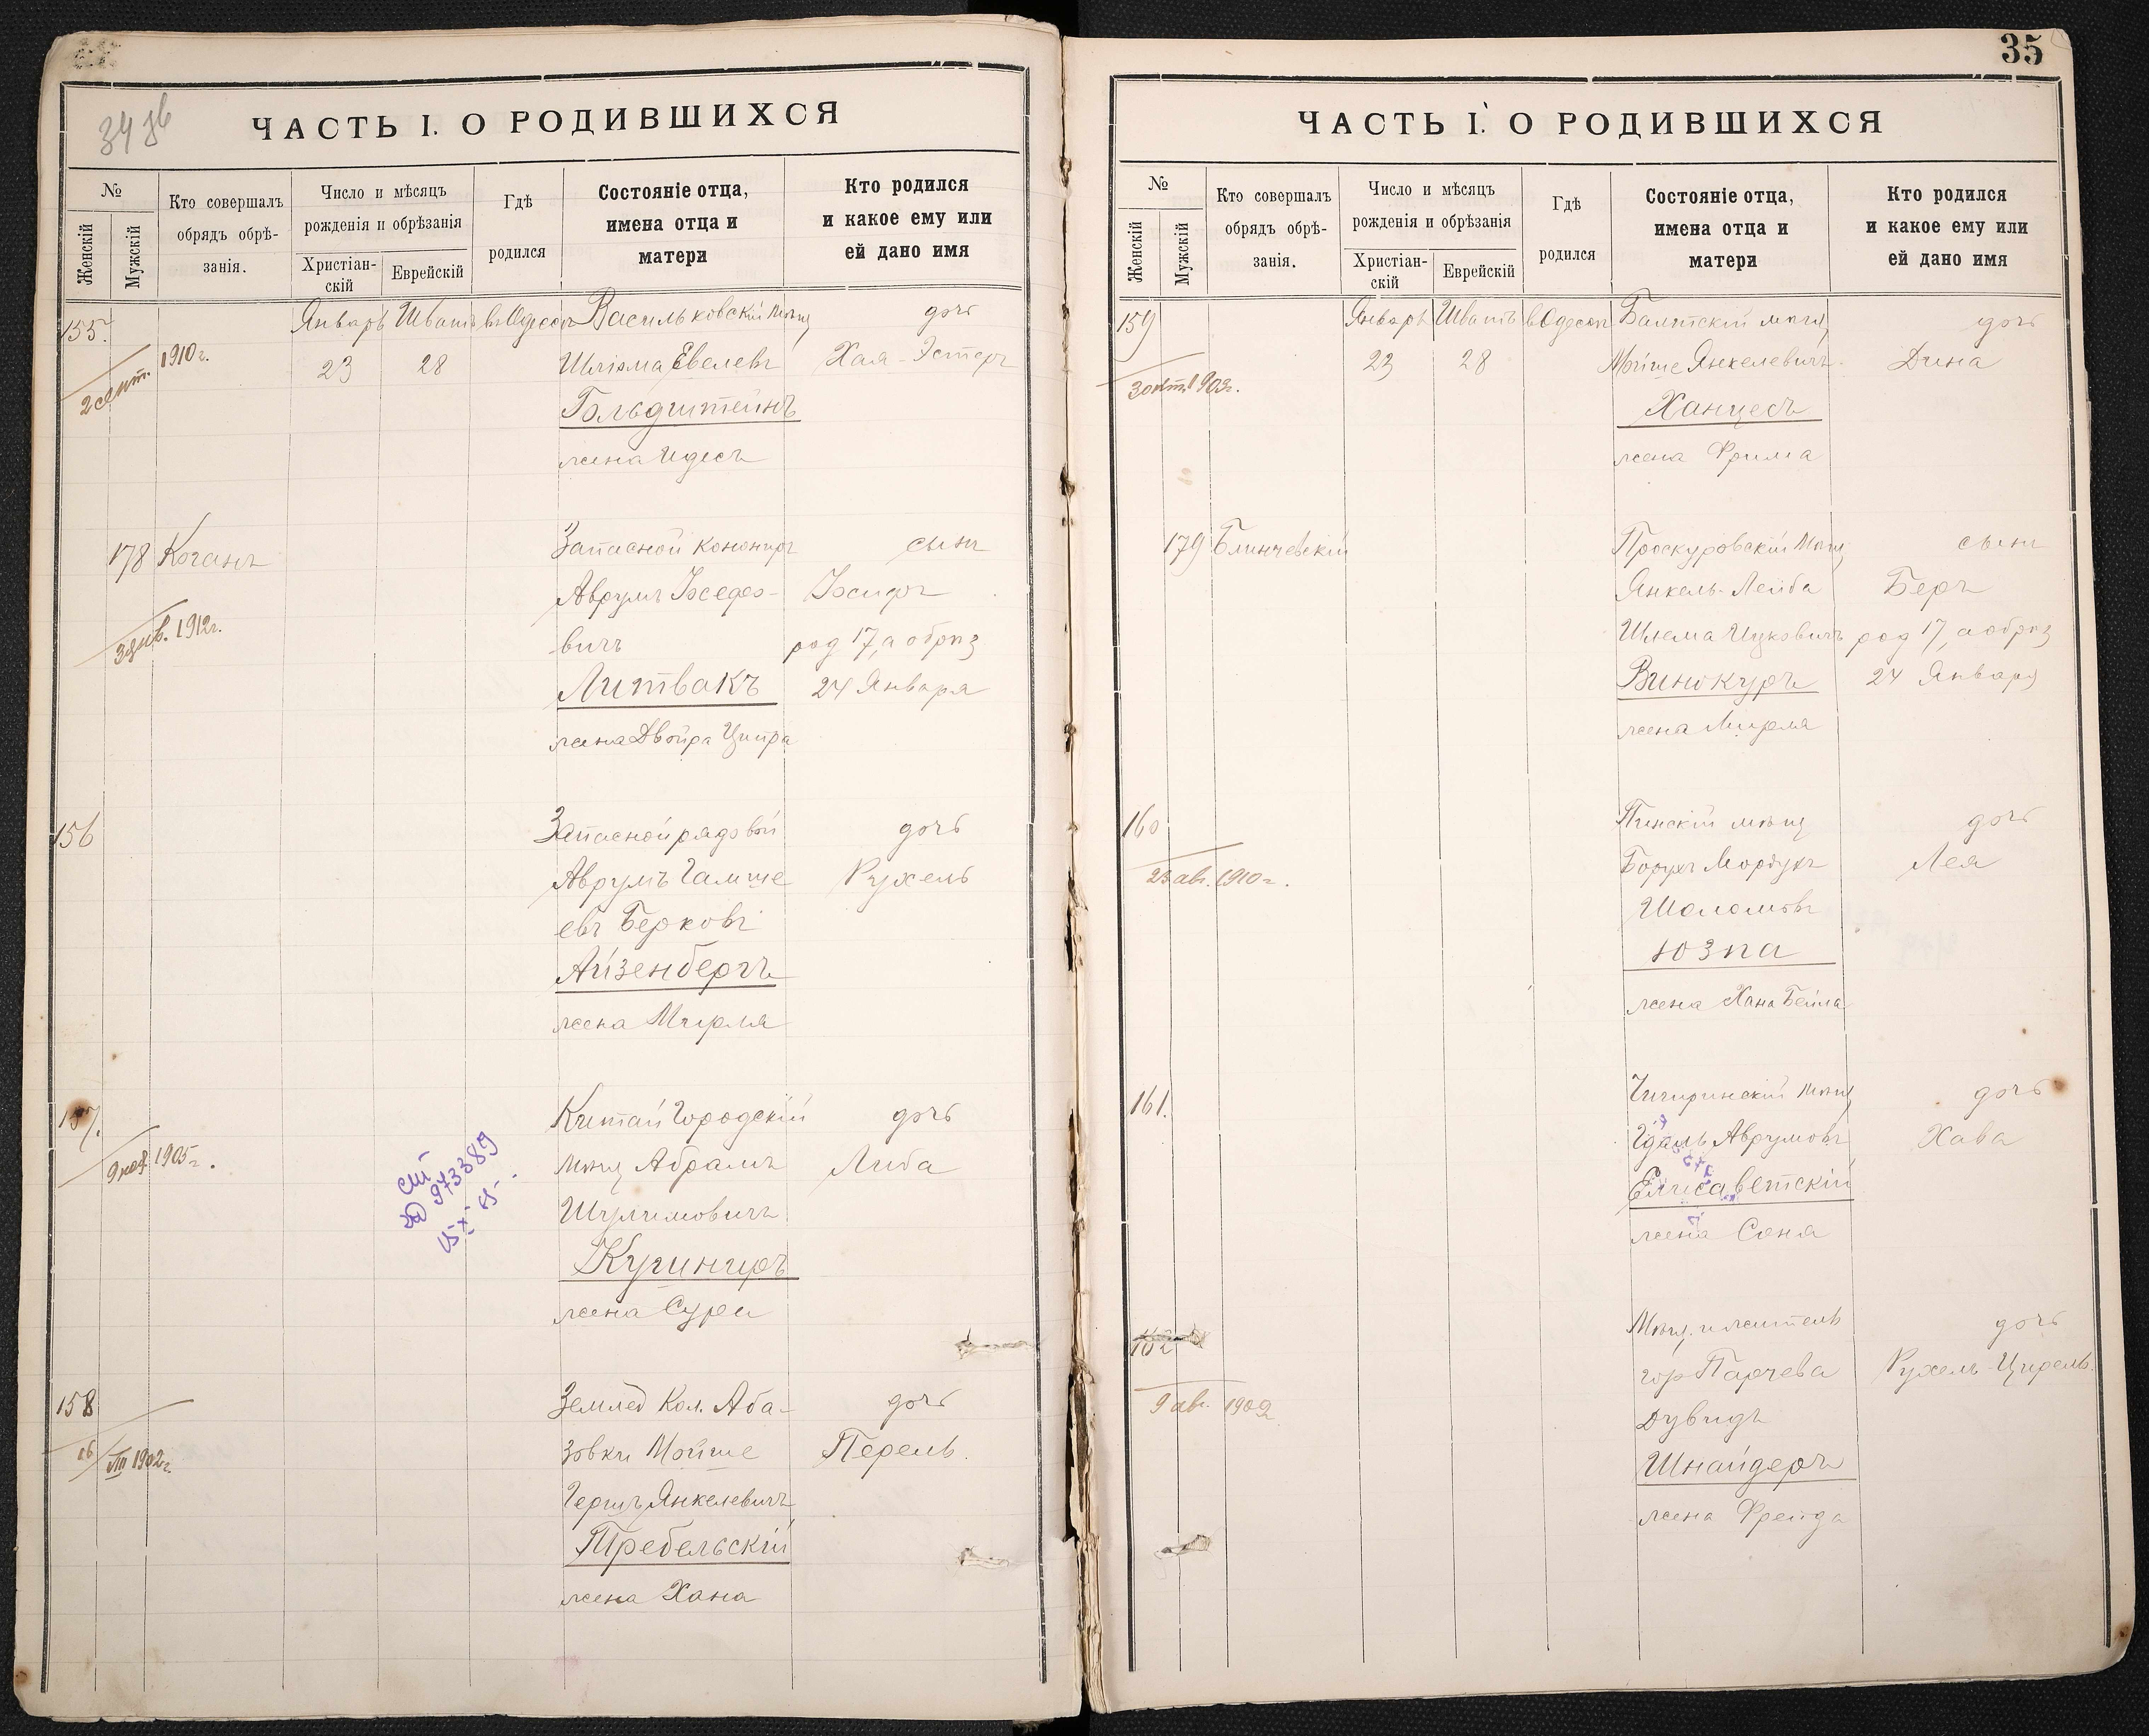 34 зв
ЧАСТЬ I. О РОДИВШИХСЯ
№
Женскій
Мужскій
Кто совершалъ
обрядъ обрѣ-
занія.
Число и мѣсяцъ
рожденія и обрѣзанія
Христіан-
скій
Еврейскій
Гдѣ
родился
Состояніе отца,
имена отца и
матери
Кто родился
и какое ему или
ей дано имя
155.
2 сент. 1910 г.
Январь Шватъ въ Одессѣ Васильковскій мѣщ дочь
23 28 Шлiома Евелевъ Хая-Эстеръ
Гольдштейнъ
жена Идесъ
178 Коганъ Запасной канониръ сынъ
3 янв. 1912 г.
Аврумъ Іосефо- Іосифъ
-вичъ род 17, а обрѣз
Литвакъ 24 Января
жена Двойра Ципра
156 Запасной рядовой дочь
Аврумъ Гамше Рухель
евъ Берковъ
Айзенбергъ
жена Мирля
157. Китай Городскій дочь
9 ноя 1905 г.
мѣщ Абрамъ Либа
Шулимовичъ
Кушниръ
жена Сура
973389
158 Землед Кол. Аба- дочь
16/VIII 1902 г.
зовки Мойше Перель.
Гершъ Янкелевичъ
Требельскій
жена Хана
35
ЧАСТЬ I. О РОДИВШИХСЯ
№
Женскій
Мужскій
Кто совершалъ
обрядъ обрѣ-
занія.
Число и мѣсяцъ
рожденія и обрѣзанія
Христіан-
скій
Еврейскій
Гдѣ
родился
Состояніе отца,
имена отца и
матери
Кто родился
и какое ему или
ей дано имя
159 Январь Шватъ въ Одессѣ Балтскій мѣщ дочь
3 окт. 1903 г.
23 28 Мойше Янкелевичъ Дина
Ханцесъ
жена Фрима
179 Блинчевскій Проскуровскій мѣщ сынъ
Янкель-Лейба Беръ
Шлема Ицковичъ род 17, а обрѣз
Винокуръ 24 Января
жена Мирля
160 Пинскій мѣщ дочь
23 авг. 1910 г.
Борухъ Мордухъ Лея
Шоломовъ
Юзпа
жена Хана Бейла
161. Чигиринскій мѣщ дочь
Гдаль Аврумовъ Хава
Елисаветскій
жена Соня
162 Мѣщ. и житель дочь
9 авг. 1902
гор Парчева Рухель-Цирель.
Дувидъ
Шнайдеръ
жена Фрейда